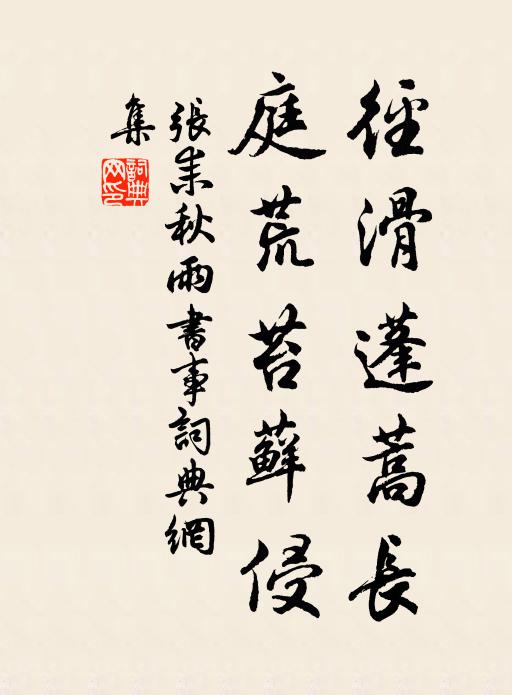 徑滑蓬蒿長
庭荒苔蘚侵
張耒秋雨書事詞典網
集
詞典網印